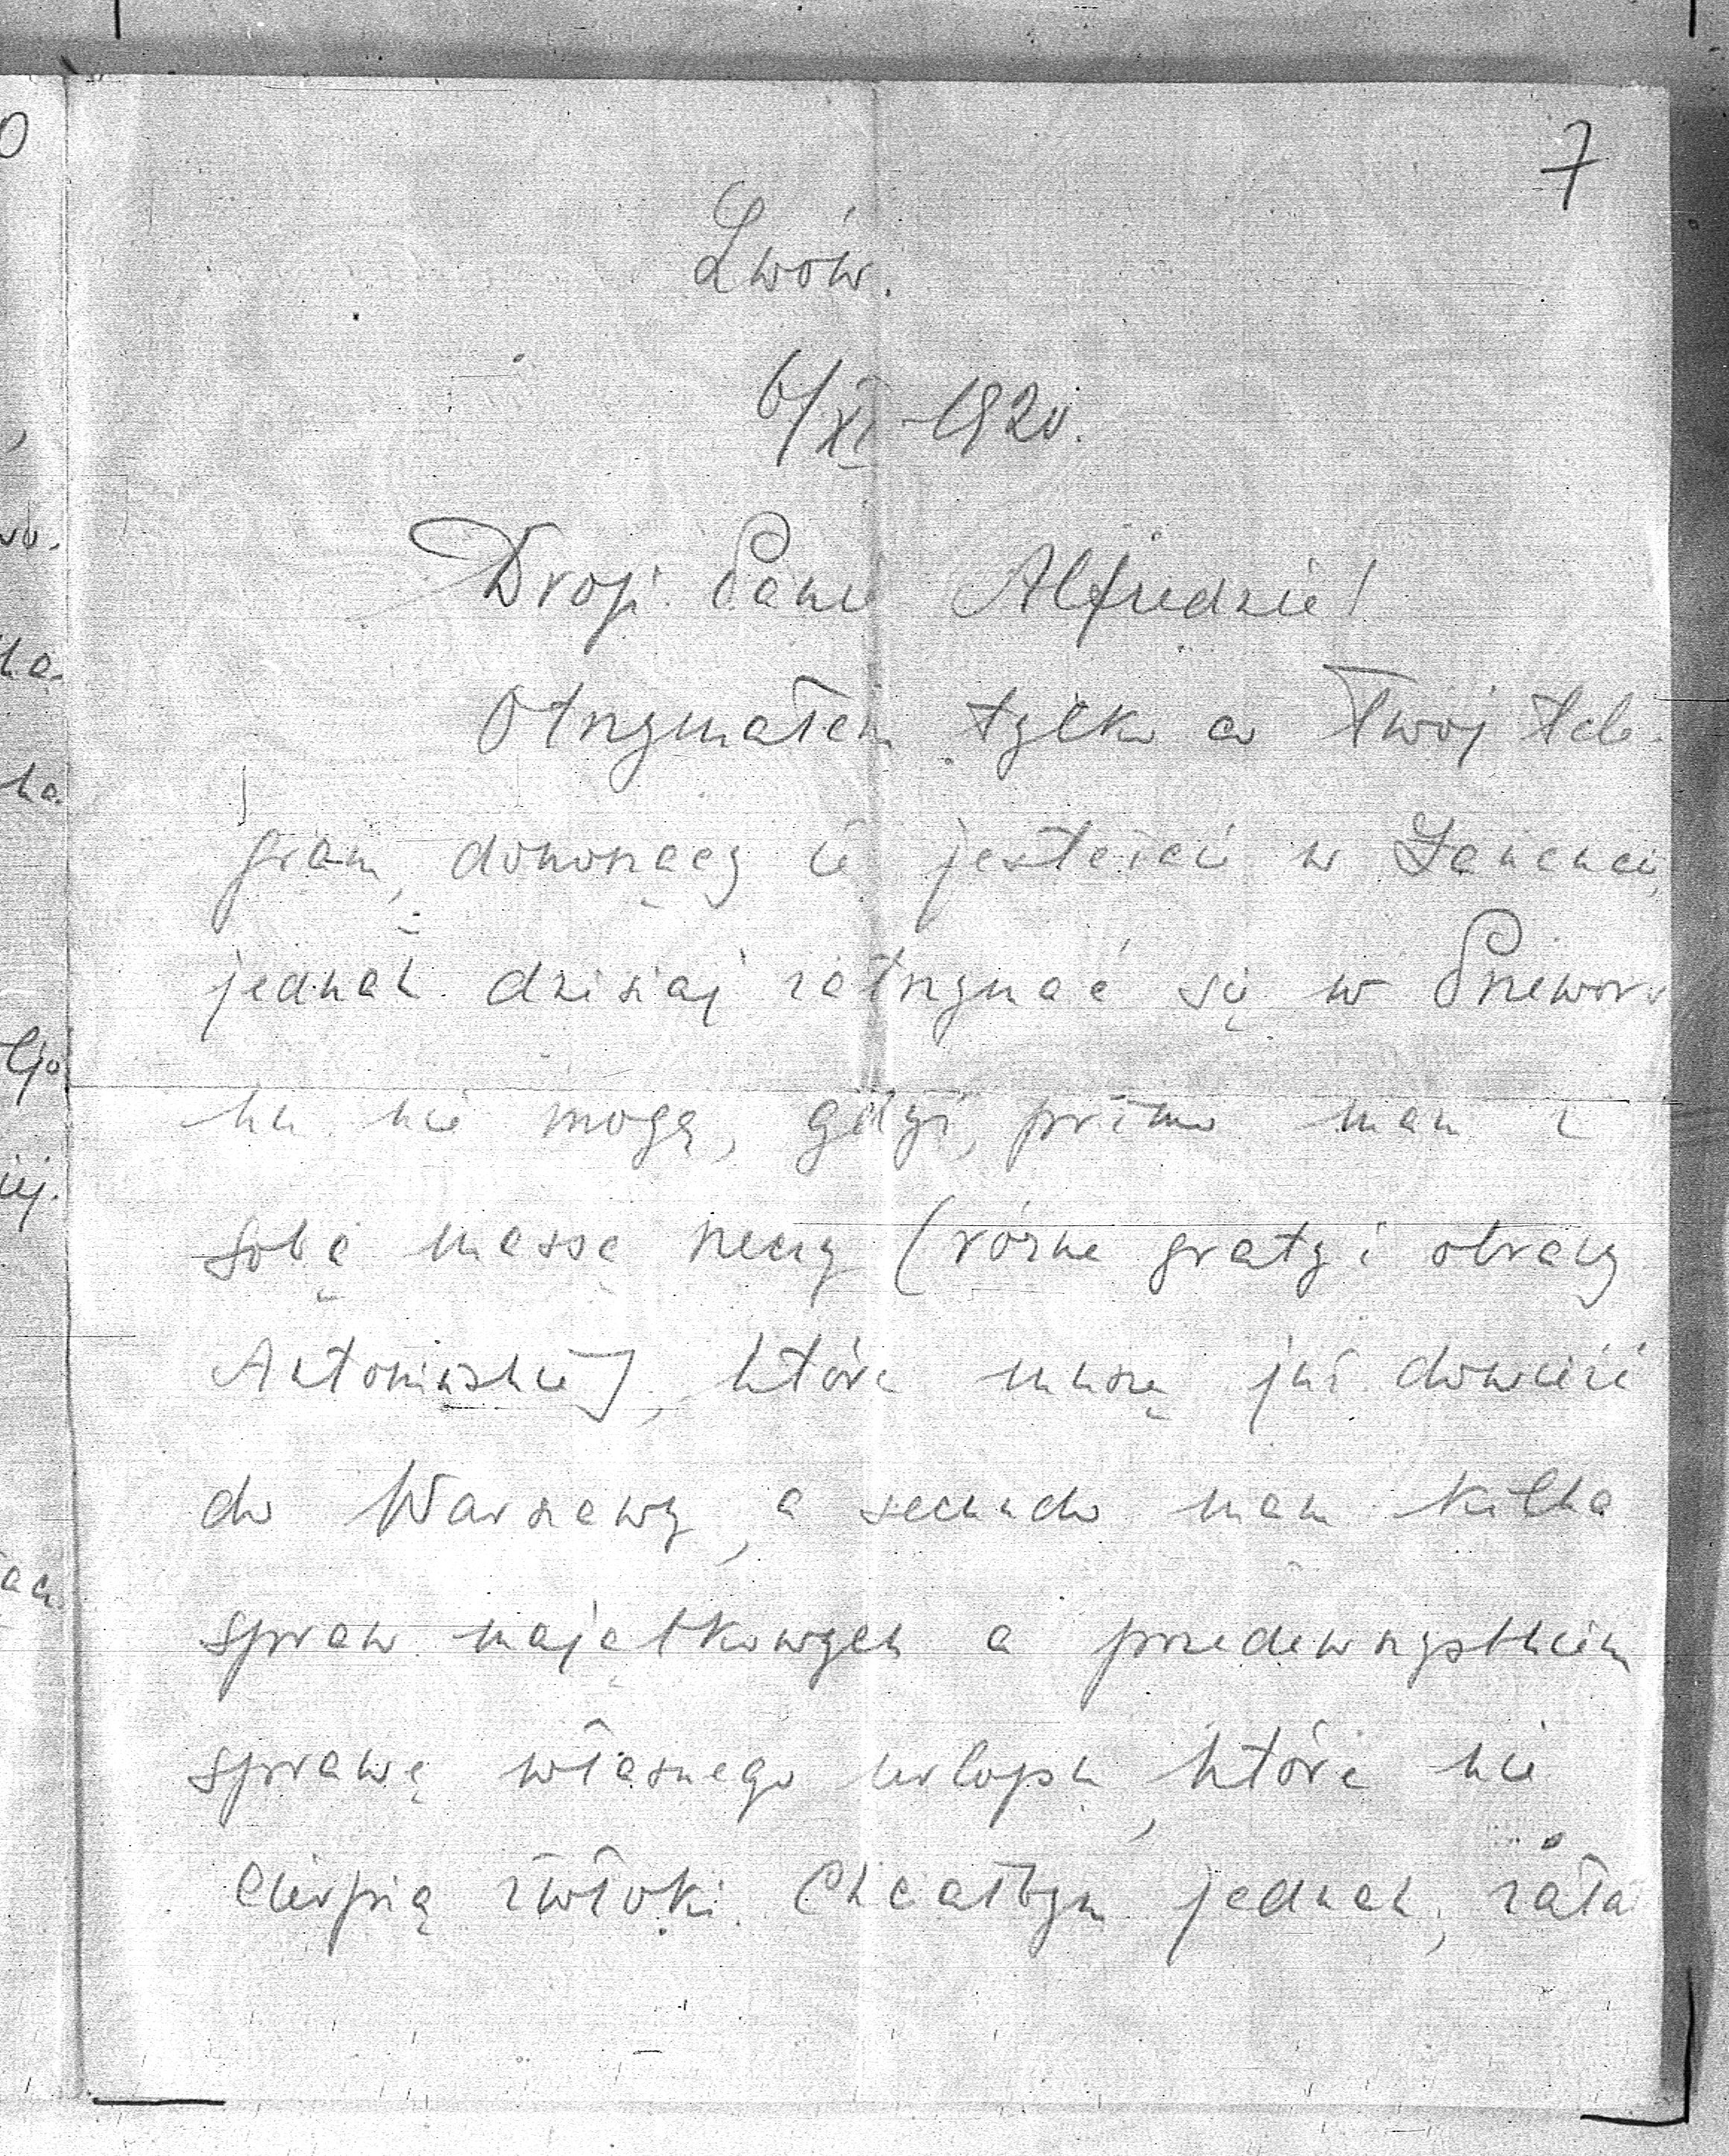 7
Lwów.
6/XI-1920.
Drogi Panie Alfredzie!
Otrzymałem tylko co Twój tele-
gram, donoszący że jesteście w Łańcucie,
jednak dzisiaj zatrzymać się w Przewors
ku nie mogę, gdyż, primo mam z
sobą massę rzeczy (różne graty i obrazy
Antonińskie), które muszę już dowieźć
do Warszawy, a secundo mam kilka
spraw majątkowych a przedewszystkiem
sprawę własnego urlopu, które nie
cierpią zwłoki. Chciałbym jednak, zała